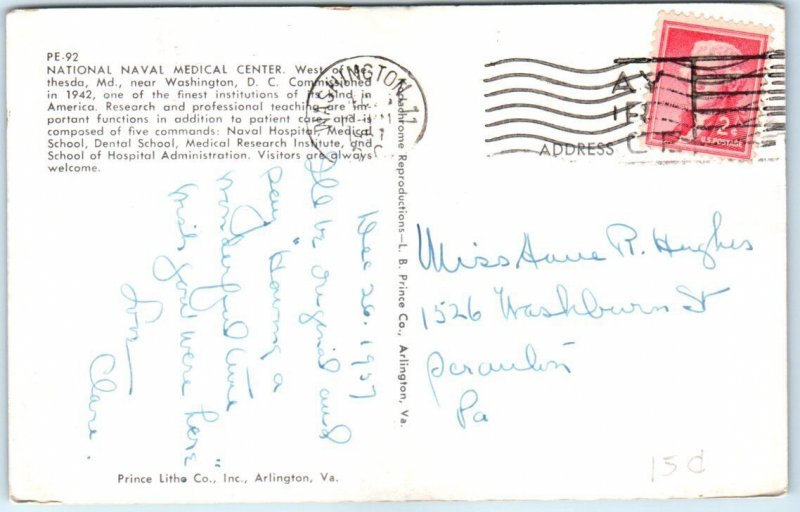 PE-92
NATIONAL NAVAL MEDICAL CENTER. West of Be-
thesda, Md., near Washington, D. C. Commissioned
in 1942, one of the finest institutions of its kind in
America. Research and professional teaching are im-
portant functions in addition to patient care, and is
composed of five commands: Naval Hospital, Medical
School, Dental School, Medical Research Institute, and
School of Hospital Administration. Visitors are always
welcome.
Dec 26, 1957
I'll be original and
say "Having a
wonderful time
wish you were here"
Love
Clare.
Prince Litho Co., Inc., Arlington, Va.
Reproductions—L. B. Prince Co., Arlington, Va.
WASHINGTON, 11
ADDRESS
2¢
U.S. POSTAGE
Miss Anne R. Hughes
1526 Washburn St
Scranton
Pa
15¢